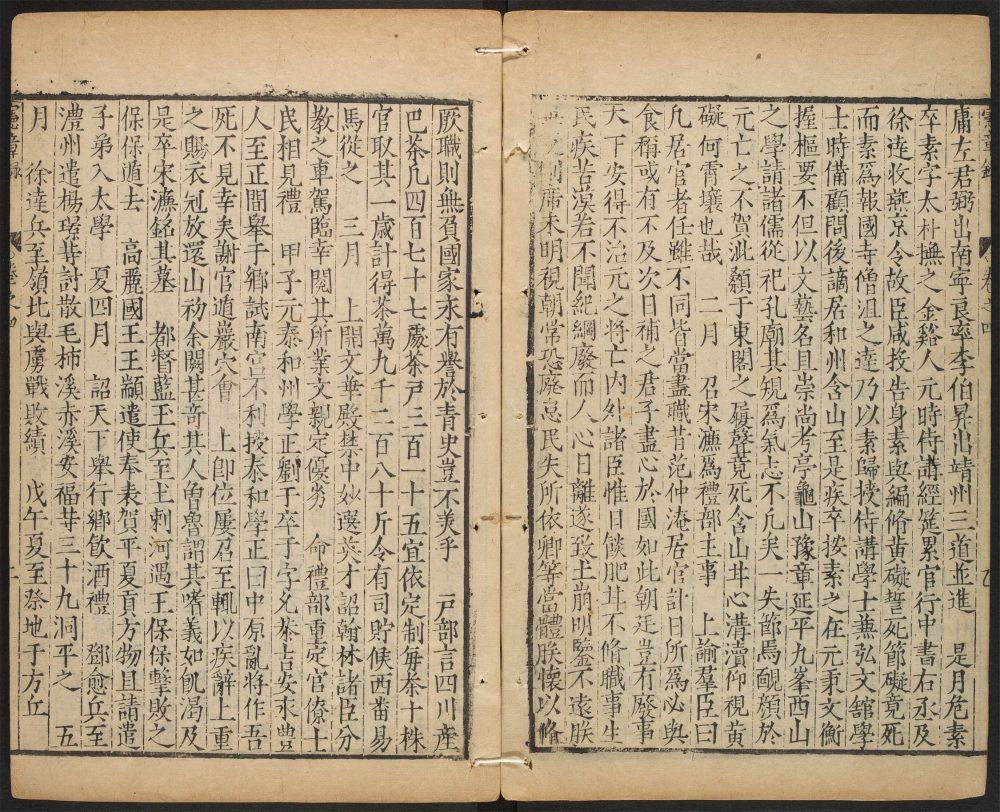 憲章錄 卷之四
庸左君弼出南寧良率李伯昇出靖州三道並進 是月危素
卒素字太朴撫之金谿人元時侍講經筵累官行中書右丞及
徐逹收燕京令故臣咸投告身素與編脩黄礙誓死節礙竟死
而素爲報國寺僧沮之逹乃以素歸授侍講學士兼弘文舘學
士時備顧問後謫居和州含山至是疾卒按素之在元秉文衡
握樞要不但以文藝名且崇尚考亭龜山豫章延平九峯西山
之學請諸儒從祀孔廟其規爲氣志不凢矣一失節焉靦顔於
元亡之不賀泚顙于東閣之履聲竟死含山甘心溝瀆仰視黄
礙何霄壤也哉 二月 召宋濂爲禮部主事 上諭羣臣曰
凢居官者任雖不同皆當盡職昔范仲淹居官計日所爲必與
食稱或有不及次日補之君子盡心於國如此朝廷豈有廢事
天下安得不治元之將亡内外諸臣惟日餤肥甘不脩職事生
民疾苦漠若不聞紀綱廢而人心日離遂致土崩明鑒不遠朕
側席未明視朝常恐廢怠民失所依卿等當體朕懷以脩
厥職則無負國家求有譽於青史豈不美乎 戸部言四川産
巴茶凢四百七十七處茶戸三百一十五宜依定制每茶十株
官取其一歲計得茶萬九千二百八十斤令有司貯候西畨易
馬從之 三月 上開文華殿禁中妙選英才詔翰林諸臣分
教之車駕臨幸閱其所業文親定優劣 命禮部重定官僚士
民相見禮 甲子元泰和州學正劉于卒于字允恭吉安永豐
人至正間舉于鄉試南宫不利授泰和學正曰中原亂將作吾
死不見幸矣謝官遁巖穴會 上卽位屢召至輒以疾辭上重
之賜衣冠放還山初余闕甚竒其人曾魯謂其嗜義如飢渴及
是卒宋濂銘其墓 都督藍玉兵至土剌河遇王保保擊敗之
保保遁去 高麗國王王顓遣使奉表賀平夏貢方物且請遣
子弟入太學 夏四月 詔天下舉行鄉飲酒禮 鄧愈兵至
澧州遣楊璟等討散毛柿溪赤溪安福等三十九洞平之 五
月 徐逹兵至嶺北與虜戰敗績 戊午夏至祭地于方丘
憲章錄